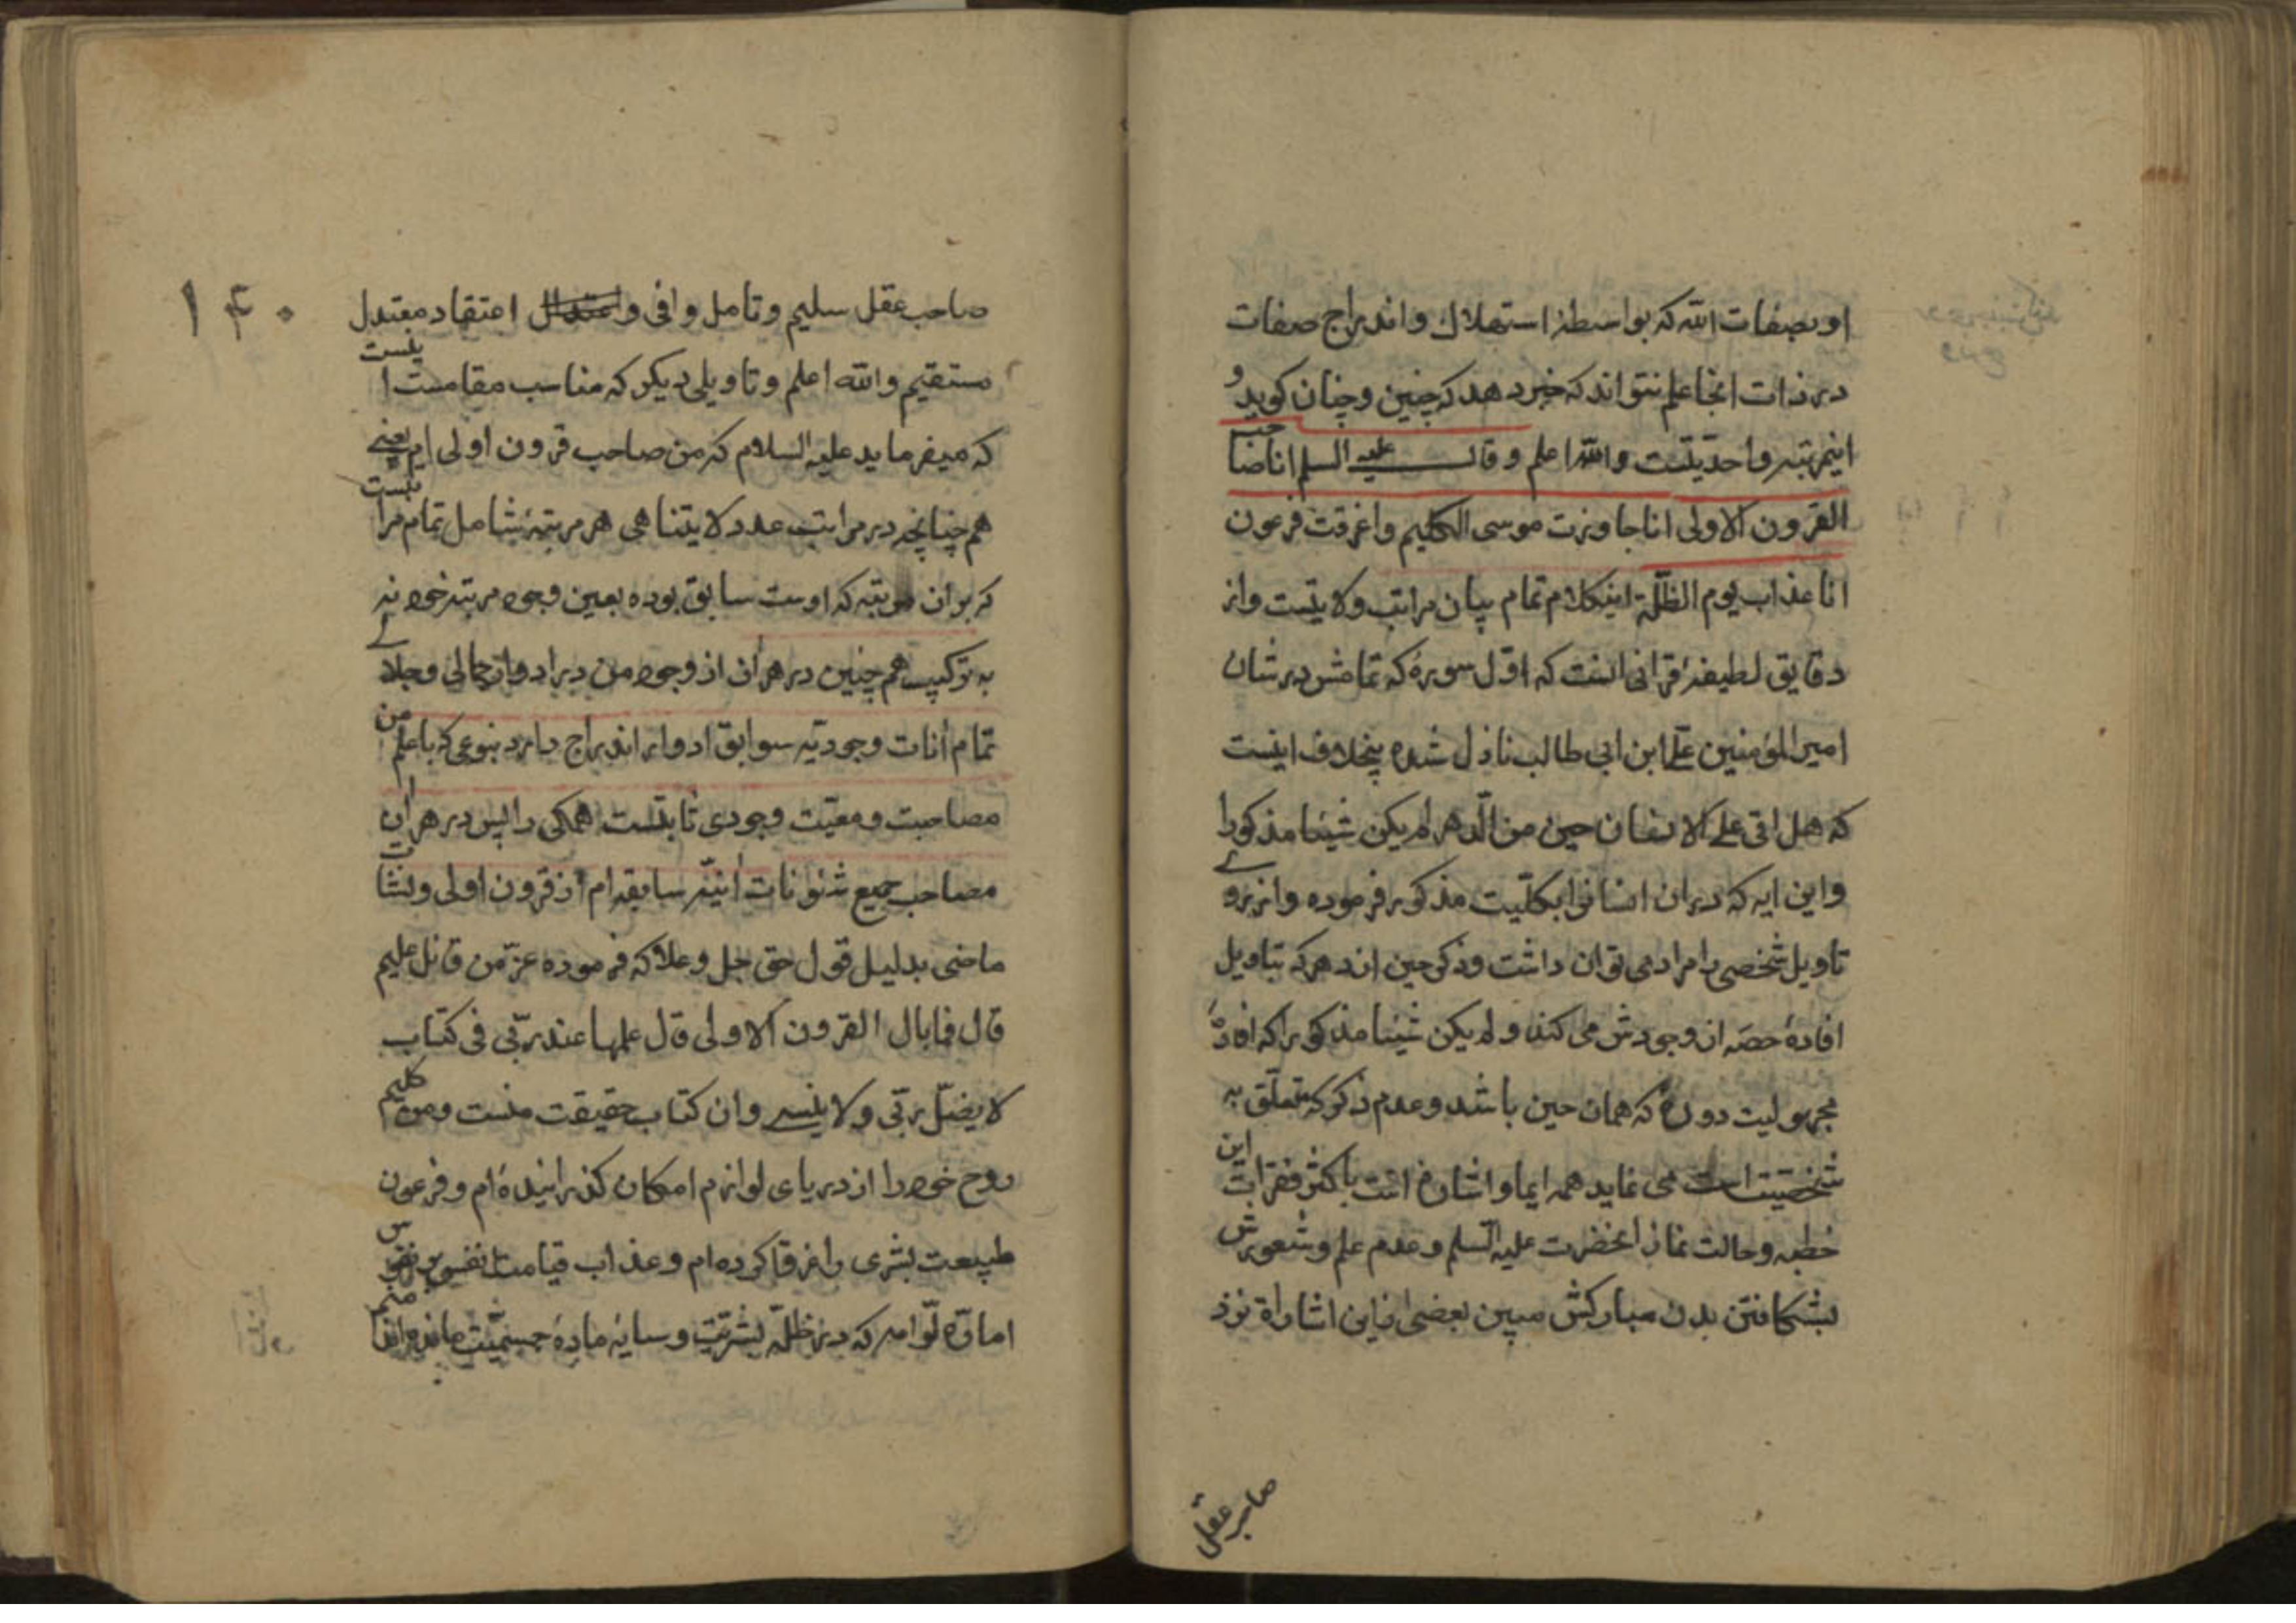 او بصفات الله که بواسطهٔ استهلاک و اندراج صفات
در ذات انجا علم نتواند که خبر دهد که چنین و چنان کوید و
اینمرتبه واحدیتست والله اعلم و قال علیه السلم انا صاحب
القرون الاولی انا جاوزت موسی الکلیم واغرقت فرعون
انا عذاب یوم الظلّة اینکلام تمام بیان مراتب ولایتست واز
دقایق لطیفهٔ قرانی انست که اوّل سورهٔ که تمامش در شان
امیرالمؤمنین علی ابن ابی طالب نازل شده بیخلاف اینست
که هل اتی علی الانسان حین من الدّهر لم یکن شیئا مذکورا
واین ایه که دران انسانرا بکلّیت مذکور فرموده واز روی
تاویل شخصی را مراد می توان داشت وذکر حین از دهر که بتاویل
افادهٔ حصه از وجودش می کند و لم یکن شیئا مذکورا که افادهٔ
مجهولیت دورهٔ که همان حین باشد وعدم ذکر که تعلّق به
شخصیت است می نماید همه ایما واشارهٔ است باکثر فقرات این
خطبه وحالت نماز انحضرت علیه السّلم وعدم علم وشعورش
بشکافتن بدن مبارکش مبین بعضی ازاین اشاراة نزد
صاحب عقل
۱۴۰
صاحب عقل سلیم وتامل وافی و اعتقاد معتدل
مستقیم والله اعلم وتاویلی دیکر که مناسب مقامست اینست
که میفرماید علیه السلام که من صاحب قرون اولی ام یعنی
هم چنانچه در مراتب عدد لایتناهی هر مرتبهٔ شامل تمام مراتبست
که بران مرتبه که اوست سابق بوده بعین وجود مرتبه خود نه
به ترکیب هم چنین در هر ان از وجود من در ادوار جمالی وجلالی
تمام انات وجودیّه سوابق ادوار اندراج دارد بنوعی که با علم من
مصاحبت ومعیّت وجودی ثابتست همکی را پس در هر ان
مصاحب جمیع شئونات انیّهٔ سابقه ام از قرون اولی ونشات
ماضی بدلیل قول حق جل وعلا که فرموده عزّ من قائل علیم
قال فما بال القرون الاولی قال علمها عند ربّی فی کتاب
لا یضلّ ربّی ولا ینسی وان کتاب حقیقت منست ومن کلیم
روح خود را از دریای لوازم امکان کذرانیده ام وفرعون
طبیعت بشری را غرقا کرده ام وعذاب قیامت نفس بر نفوس
امارّه لوّامه که در ظلّه بشریّت وسایهٔ مادهٔ جسمیّت مانده اند منم